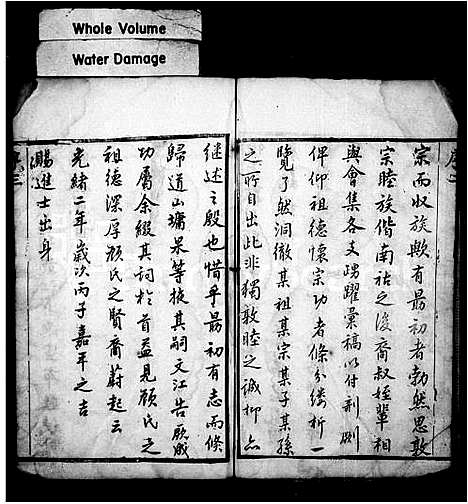 Whole Volume
Water Damage
序二
宗而収族歟有最初者勃然思敦
宗睦族偕南祜之後裔叔姪輩相
與會集各支踴躍彙稿以付剞劂
俾仰祖德懷宗功者條分縷析一
覽了然洞徹某祖某宗某子某孫
之所自出此非獨敦睦之誠抑亦
繼述之殷也惜乎最初有志而倏
歸道山墉杲等掖其嗣文江告厥成
功屬余綴其詞於首益見顧氏之
祖德深厚顧氏之賢裔蔚起云
光緒二年歲次丙子嘉平之吉
賜進士出身
序三